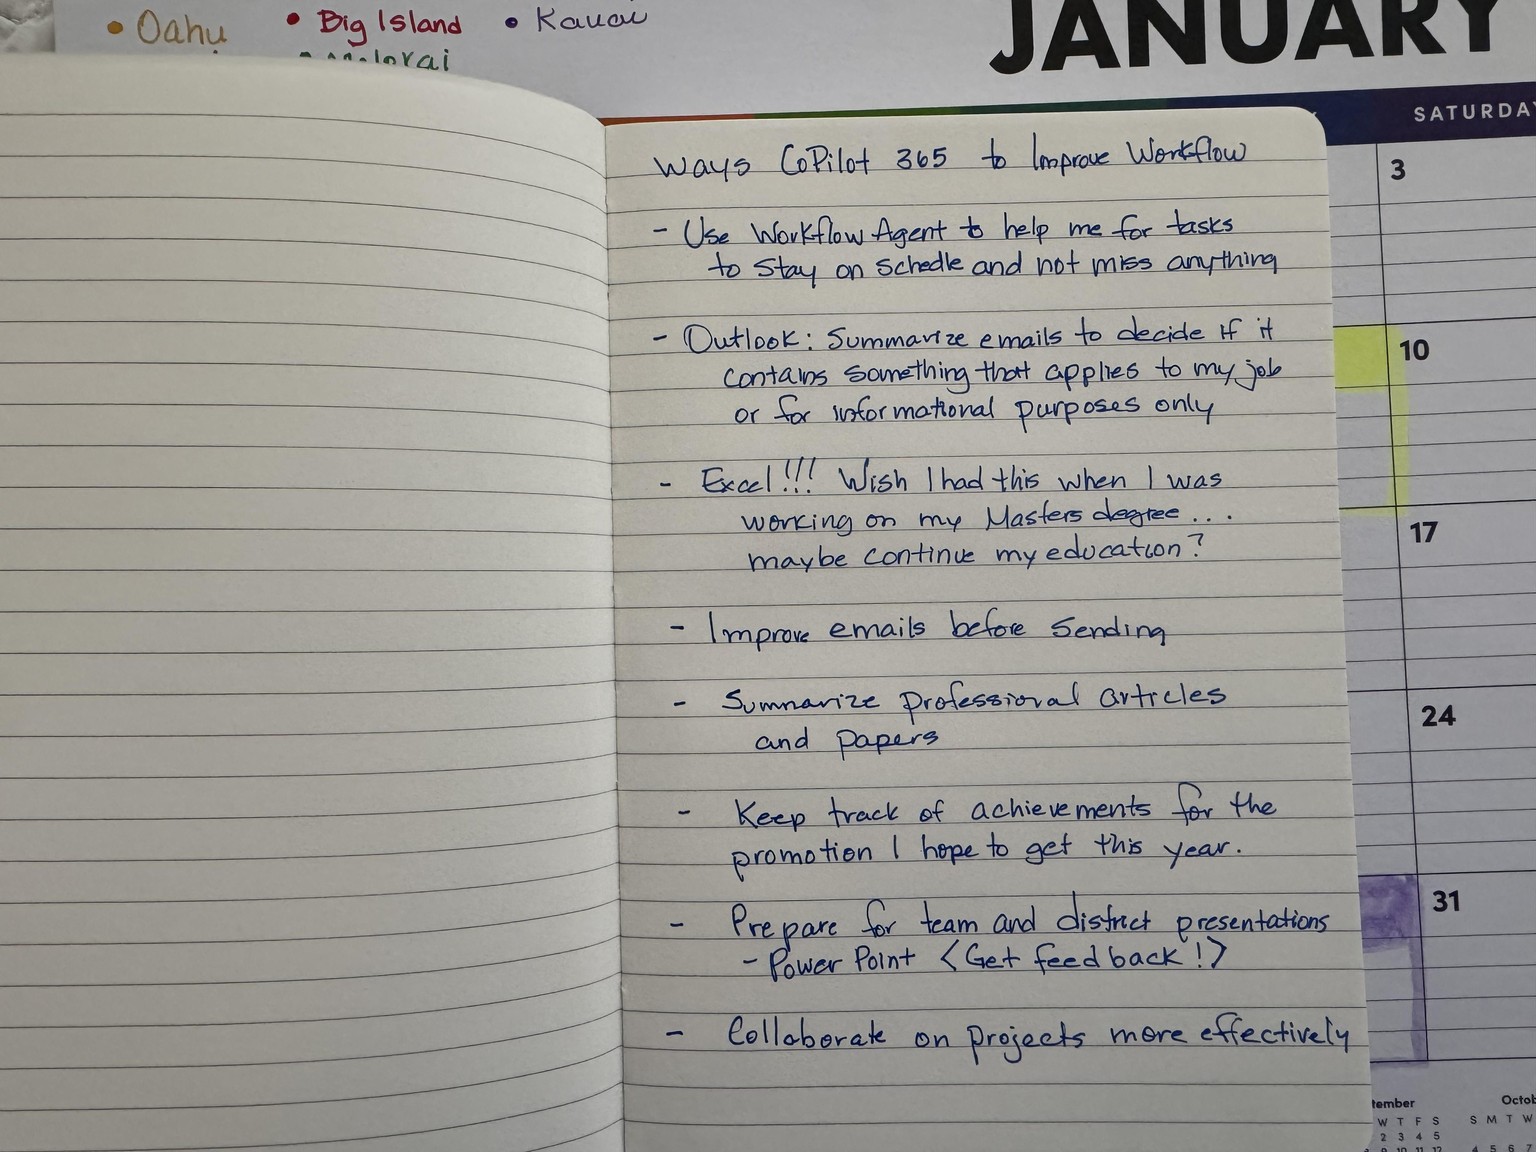 • Oahu • Big Island • Kauai
JANUARY
SATURDAY
3
10
17
24
31
Ways CoPilot 365 to Improve Workflow
- Use Workflow Agent to help me for tasks
to stay on schedle and not miss anything
- Outlook: Summarize emails to decide if it
contains something that applies to my job
or for informational purposes only
- Excel!!! Wish I had this when I was
working on my Masters degree...
maybe continue my education?
- Improve emails before sending
- Summarize professional articles
and papers
- Keep track of achievements for the
promotion I hope to get this year.
- Prepare for team and district presentations
- Power Point <Get feedback!>
- Collaborate on projects more effectively
tember Octob
W T F S S M T W
2 3 4 5